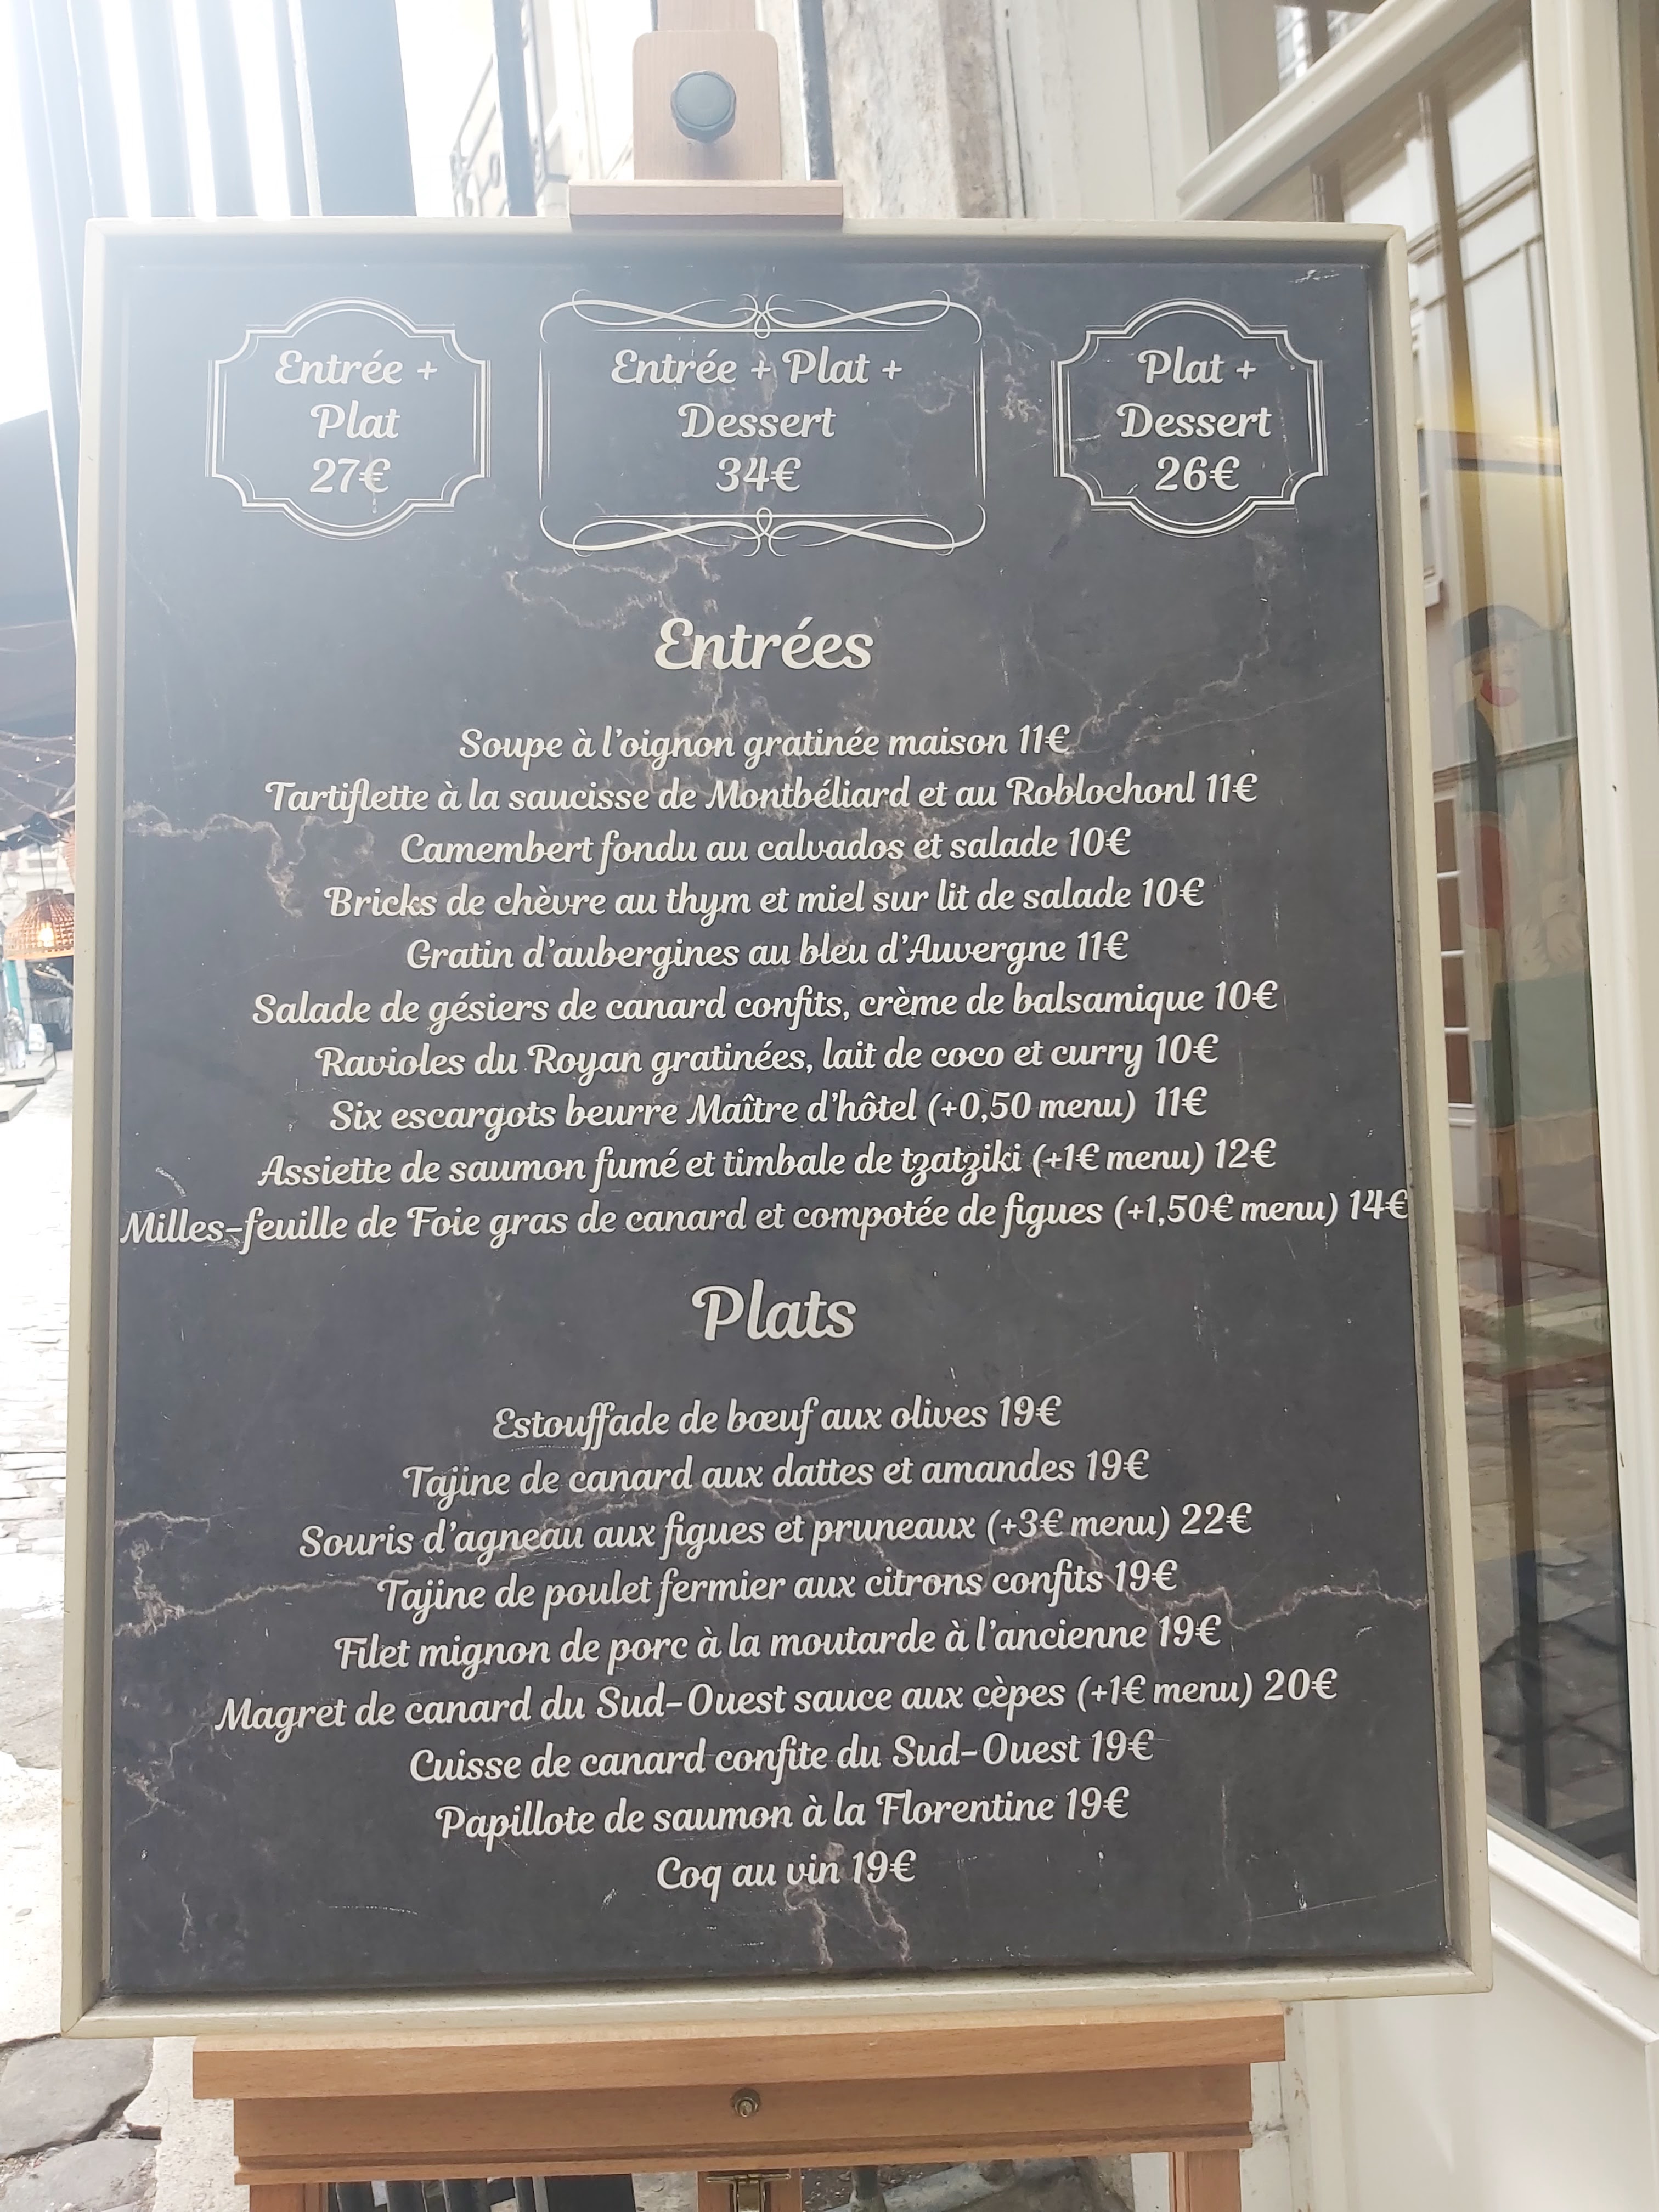 Entrée +
Plat
27€
Entrée + Plat +
Dessert
34€
Plat +
Dessert
26€
Entrées
Soupe à l'oignon gratinée maison 11€
Tartiflette à la saucisse de Montbéliard et au Roblochonl 11€
Camembert fondu au calvados et salade 10€
Bricks de chèvre au thym et miel sur lit de salade 10€
Gratin d'aubergines au bleu d'Auvergne 11€
Salade de gésiers de canard confits, crème de balsamique 10€
Ravioles du Royan gratinées, lait de coco et curry 10€
Six escargots beurre Maître d'hôtel (+0,50 menu) 11€
Assiette de saumon fumé et timbale de tzatziki (+1€ menu) 12€
Milles-feuille de Foie gras de canard et compotée de figues (+1,50€ menu) 14€
Plats
Estouffade de bœuf aux olives 19€
Tajine de canard aux dattes et amandes 19€
Souris d'agneau aux figues et pruneaux (+3€ menu) 22€
Tajine de poulet fermier aux citrons confits 19€
Filet mignon de porc à la moutarde à l'ancienne 19€
Magret de canard du Sud-Ouest sauce aux cèpes (+1€ menu) 20€
Cuisse de canard confite du Sud-Ouest 19€
Papillote de saumon à la Florentine 19€
Coq au vin 19€